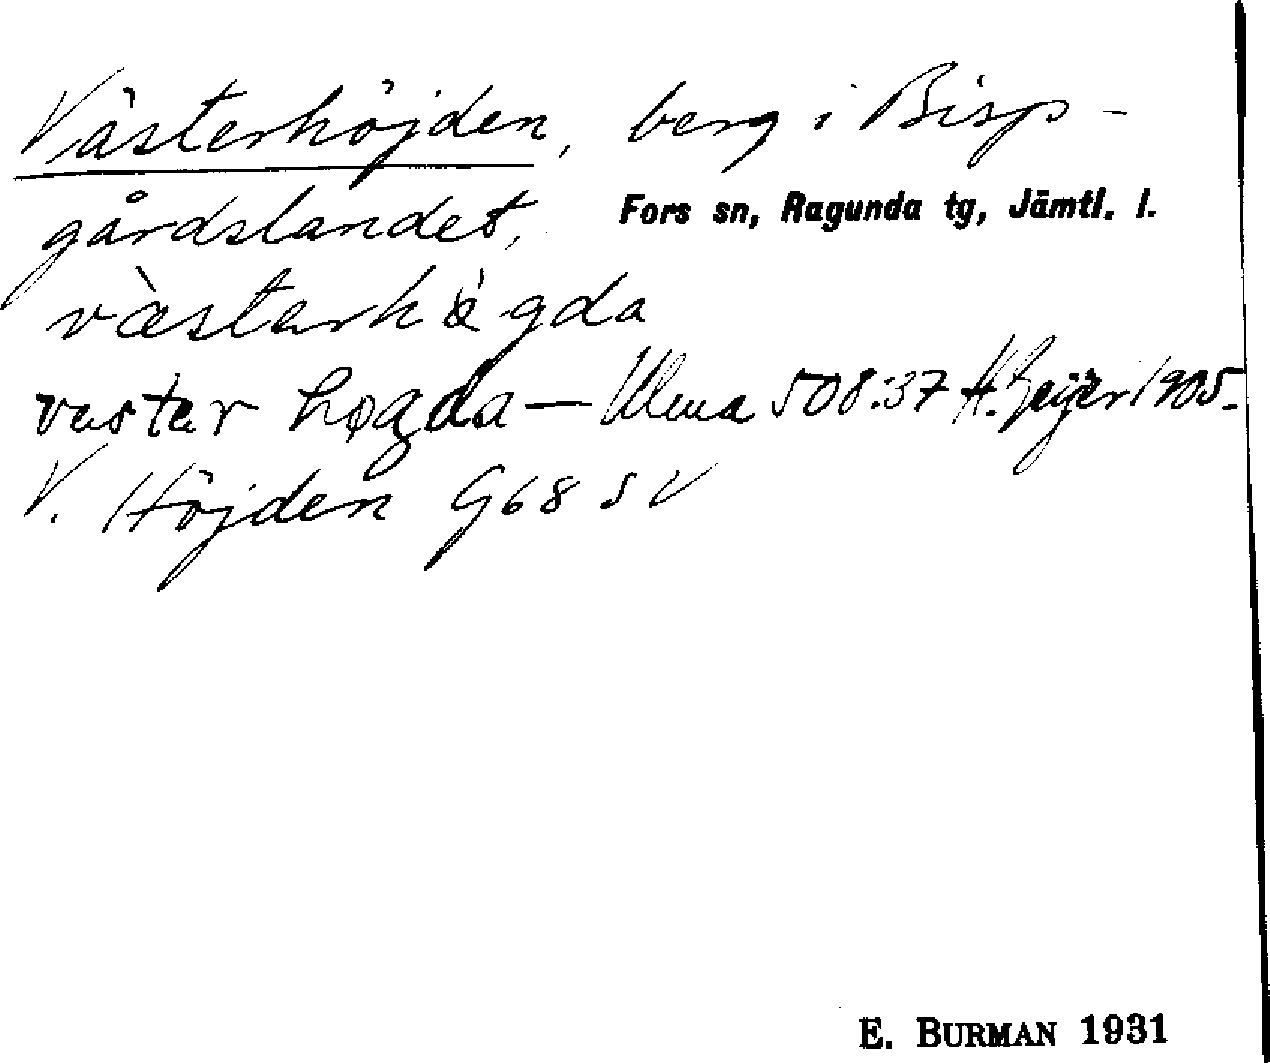 Västerhöjden, berg i Bisp-
gårdslandet, Fors sn, Ragunda tg, Jämtl. l.
væ̀starhø̀gda
vastar høgda — Ulma 508:37 H. Geijer 1905.
V. Höjden G68 SV
E. BURMAN 1931